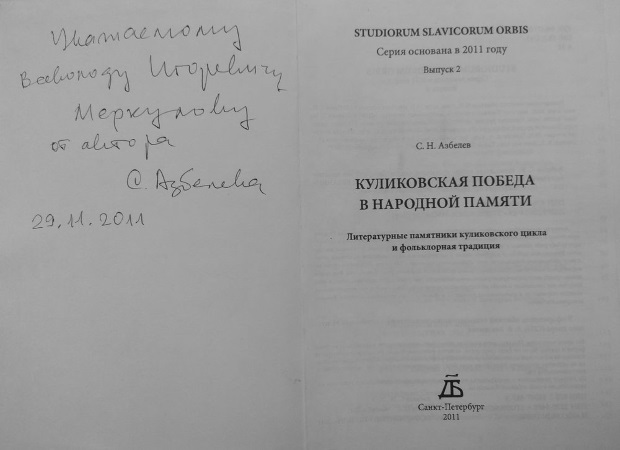 Уважаемому
Всеволоду Игоревичу
Меркулову
от автора
С. Азбелева
29.11.2011
STUDIORUM SLAVICORUM ORBIS
Серия основана в 2011 году
Выпуск 2
С. Н. Азбелев
КУЛИКОВСКАЯ ПОБЕДА
В НАРОДНОЙ ПАМЯТИ
Литературные памятники куликовского цикла
и фольклорная традиция
ДБ
Санкт-Петербург
2011